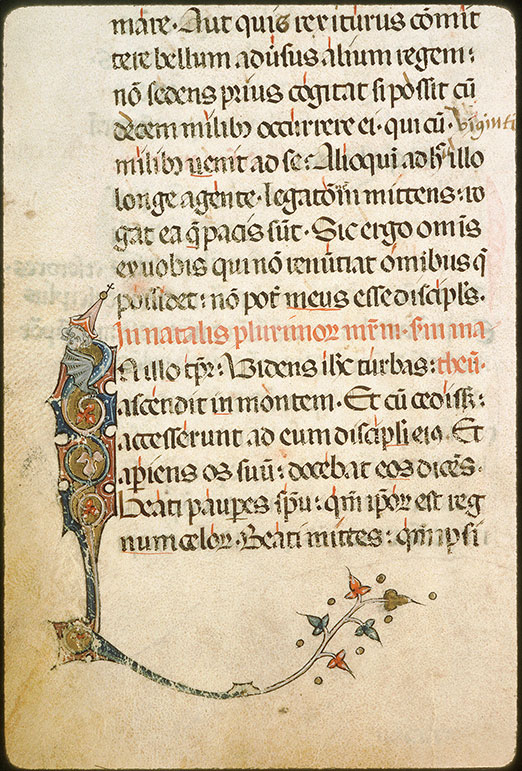 mare. Aut quis rex iturus cōmit
tere bellum adu̓sus alium regem:
nō sedens prius cogitat si possit cū
decem milibꝫ occurrere ei. qui cū viginti
milibꝫ uenit ad se: Alioqui adh̓ illo
longe agente. legatōm̄ mittens: ro
gat ea q̄ pacis sūt. Sic ergo om̄is
ex uobis qui nō renūtiat om̄ibus q̄
possidet: nō pot̄ meus esse discipl̓s.
In natalis plurimoꝝ mr̄m. sm̄ ma
theū.
N illo tp̄r. Videns ih̄c turbas:
ascendit in montem. Et cū
accesserunt ad eum discipli ei9. Et
apiens os suū: docebat eos dicēs.
Beati paup̄es sp̄u: qm̄ ip̄oꝝ est reg
num celoꝝ. Beati mittes: qm̄ ipsi